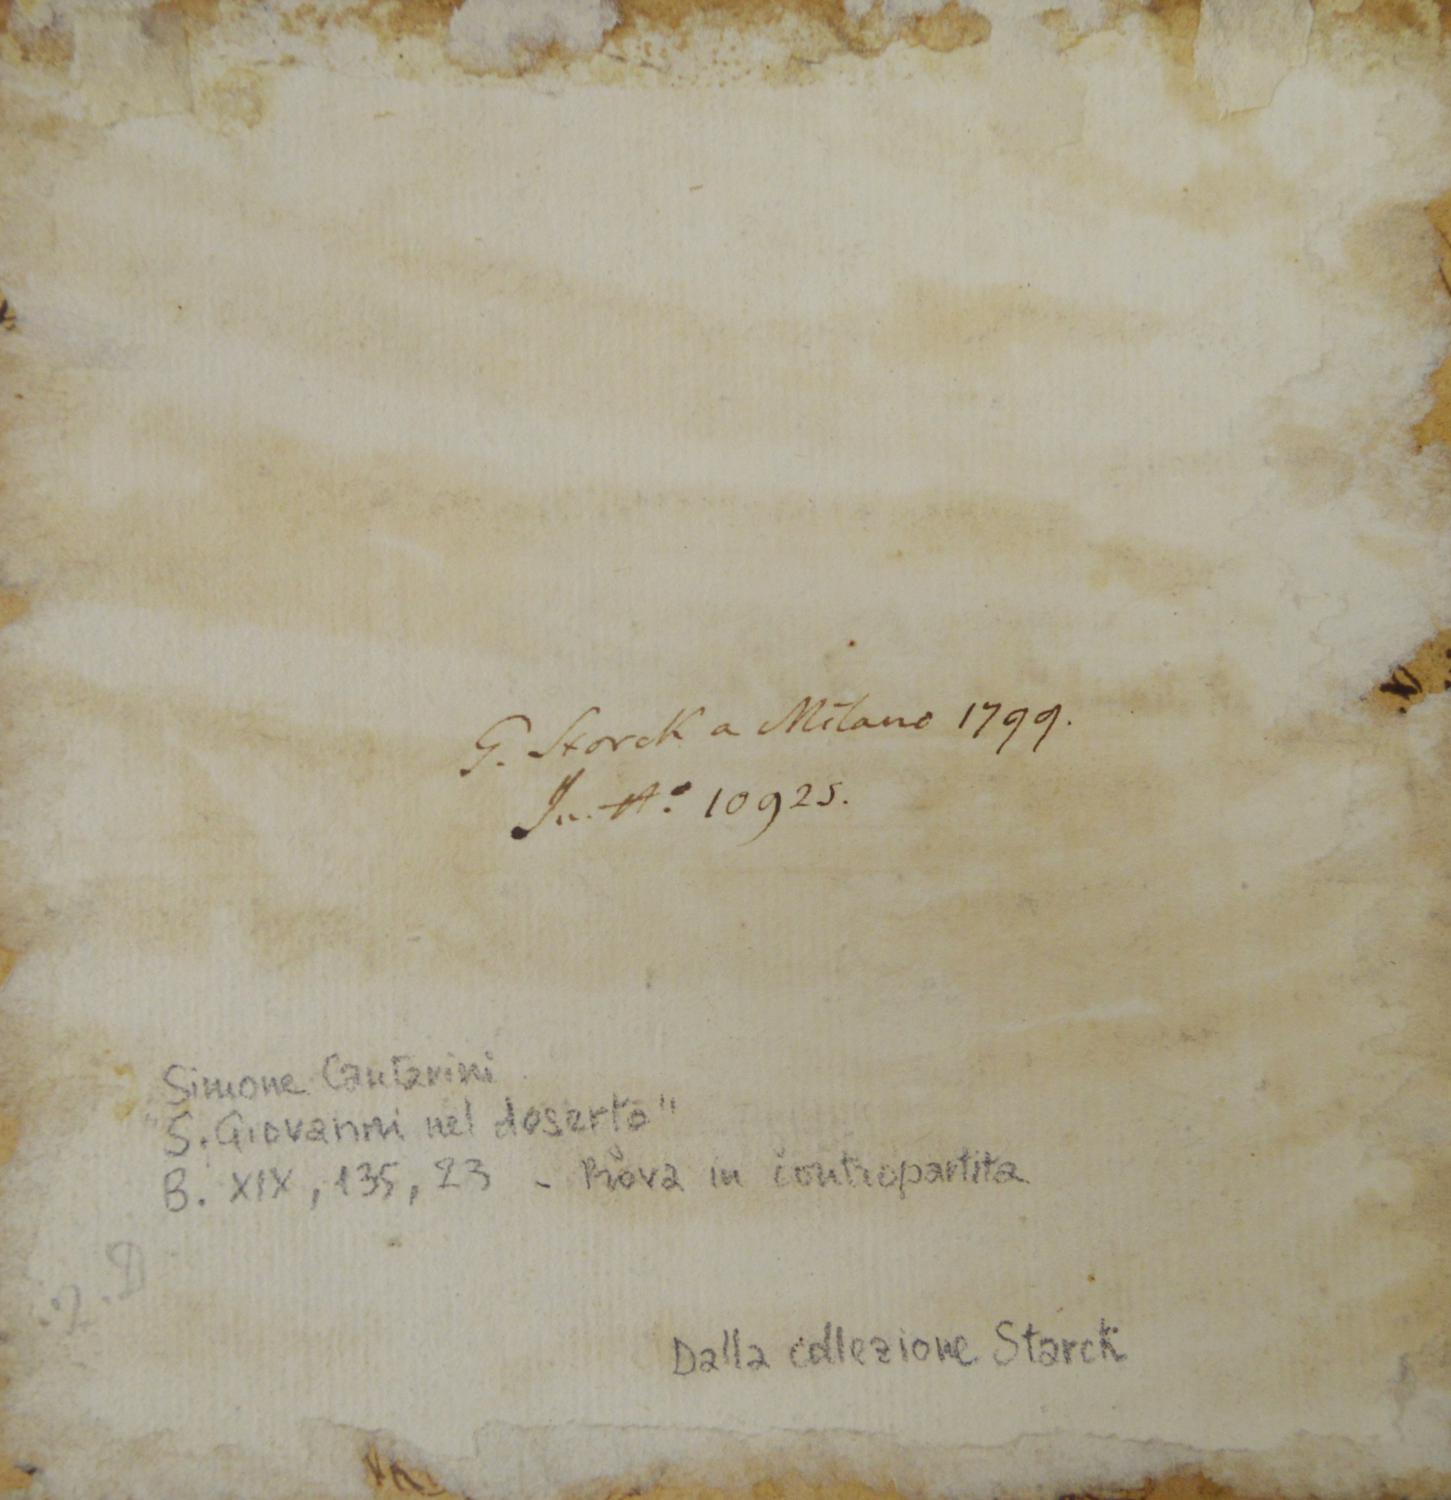 G. Storck a Milano 1799.
In. N.º 10925.
Simone Cantarini
"S. Giovanni nel deserto"
B. XIX, 135, 23 - Prova in contropartita
Dalla collezione Starck